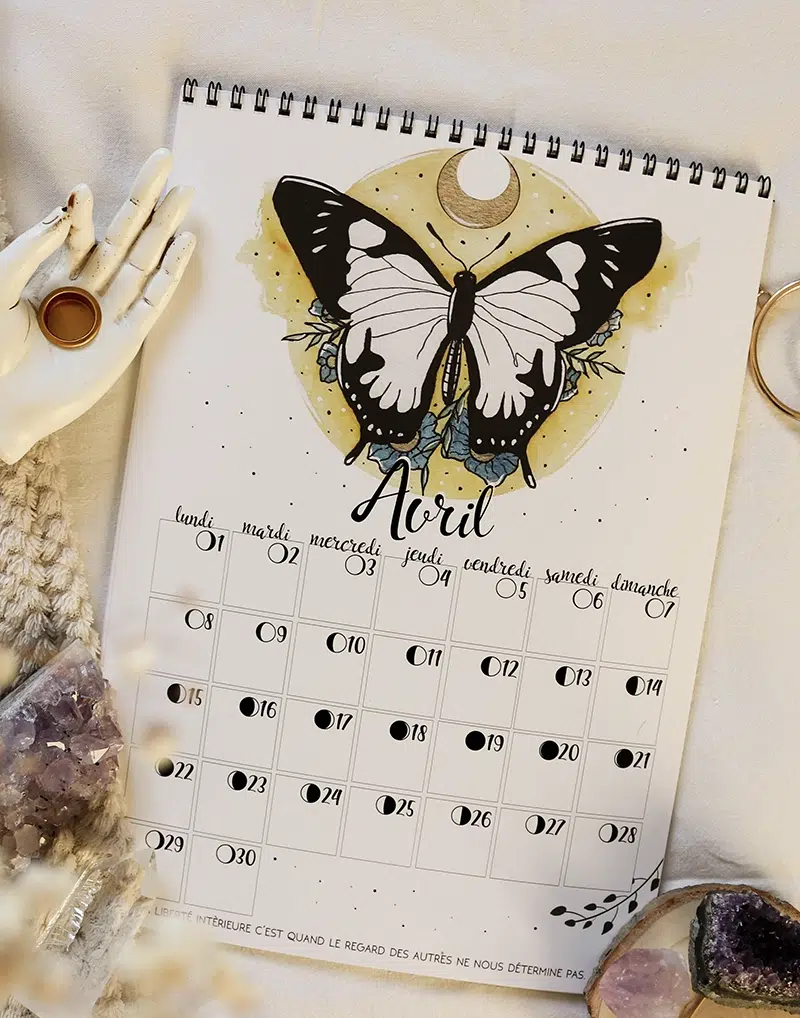 Avril
lundi mardi mercredi jeudi vendredi samedi dimanche
1 2 3 4 5 6 7
8 9 10 11 12 13 14
15 16 17 18 19 20 21
22 23 24 25 26 27 28
29 30
LIBERTÉ INTÈRIEURE C'EST QUAND LE REGARD DES AUTRÈS NE NOUS DÉTERMINE PAS.